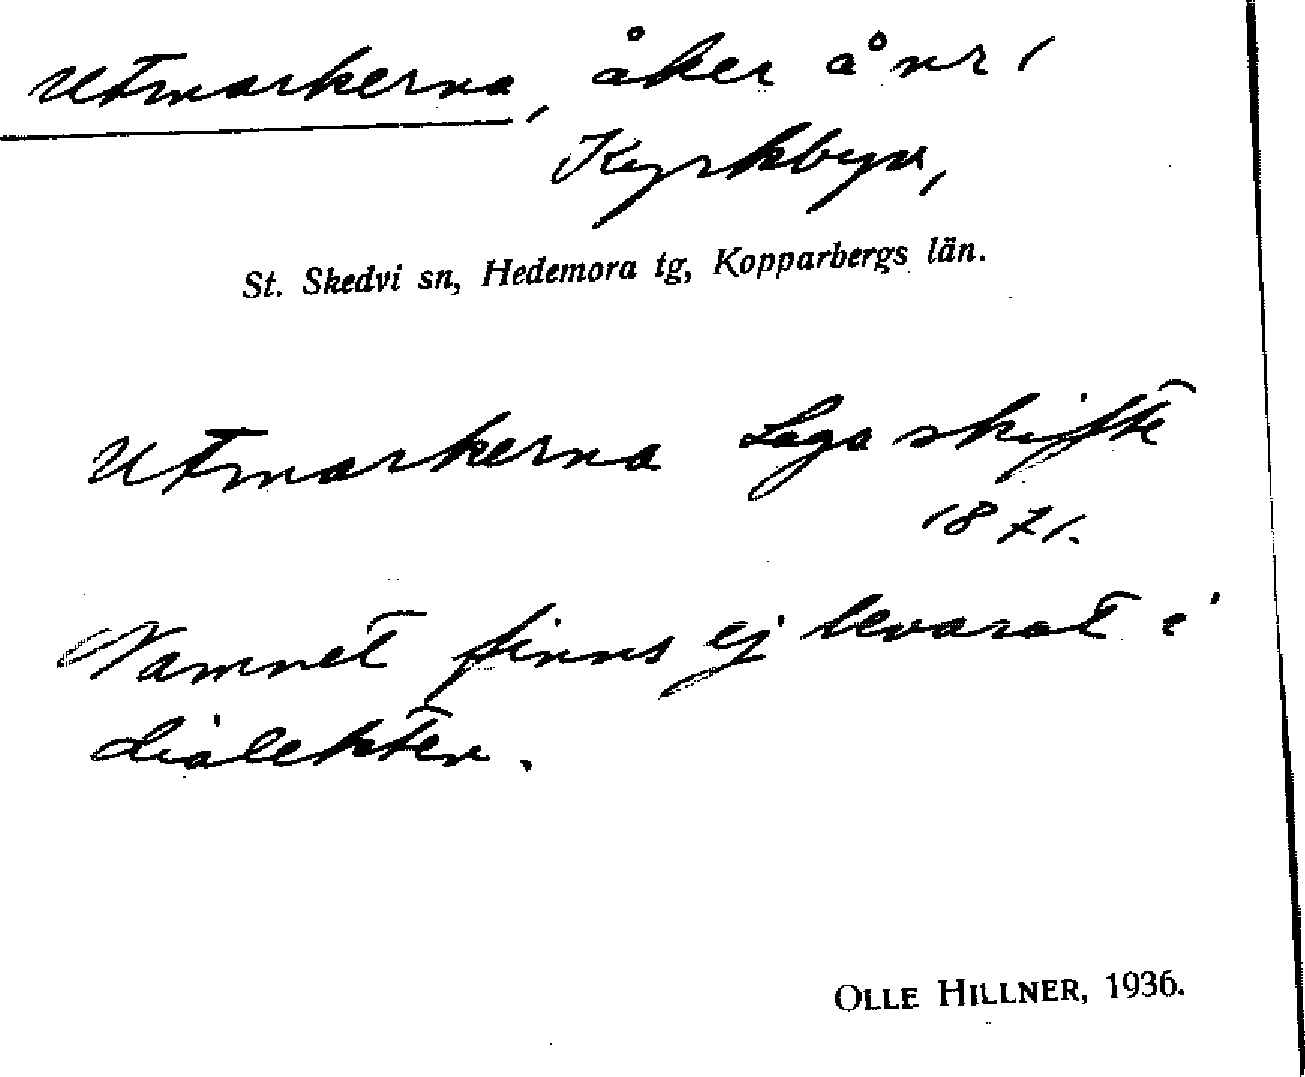 Utmarkerna, åker å nr 1
Kyrkbyn,
St. Skedvi sn, Hedemora tg, Kopparbergs län.
Utmarkerna Laga skifte
1871.
Namnet finns ej bevarat i
dialekten.
OLLE HILLNER, 1936.